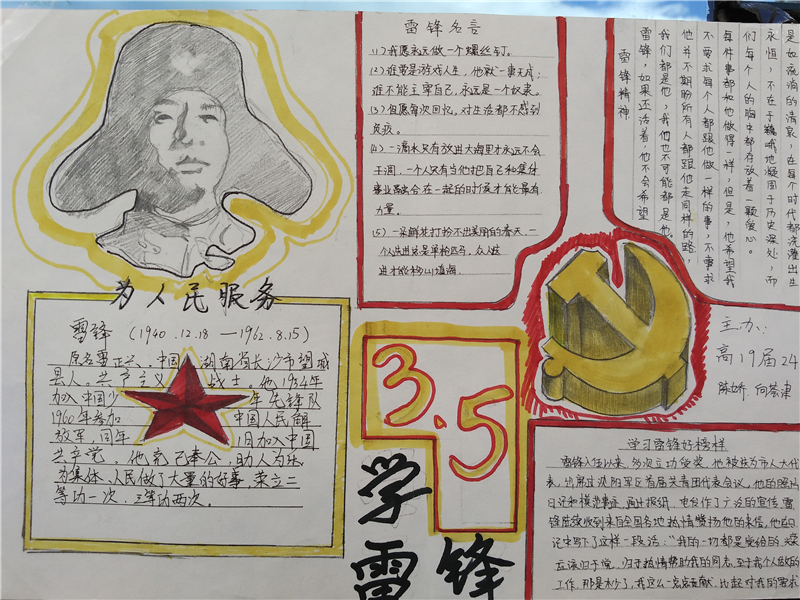 为人民服务
雷锋 (1940.12.18 —1962.8.15)
原名雷正兴、中国 湖南省长沙市望城
县人。共产主义 战士。他1954年
加入中国少 年先锋队
1960年参加 中国人民解
放军,同年 1月加入中国
共产党。他克己奉公,助人为乐,
为集体、人民做了大量的好事,荣立二
等功一次,三等功两次。
雷锋名言
(1)我愿永远做一个螺丝钉。
(2)谁要是游戏人生,他就一事无成;
谁不能主宰自己,永远是一个奴隶。
(3)但愿每次回忆,对生活都不感到
负疚。
(4)一滴水只有放进大海里才永远不会
干涸,一个人只有当他把自己和集体
事业融合在一起的时候才能最有
力量。
(5)一朵鲜花打扮不出美丽的春天,一
个人先进总是单枪匹马,众人先
进才能移山填海.
雷锋精神
雷锋,如果还活着,他不会希望
我们都是他,我们也不可能都是他,
他并不期盼所有人都跟他走同样的路,
不要求每个人都跟他做一样的事,不事求
每件事都如他做得一样,但是,他希望我
们每个人的胸中都存放着一颗爱心。
永恒,不在于巍峨地凝固于历史深处,而
是如流淌的清泉,在每个时代都浇灌出生
3.5
学
雷锋
主办:
高19届24
学习雷锋好榜样
雷锋入伍以来,多次立功受奖,他被选为市人大代
表,出席过沈阳军区首届共青团代表会议,他的照片
日记和模范事迹,通过报纸、电台作了广泛的宣传,雷
锋陆续收到来自全国各地热情赞扬他的来信,他在日
记中写下了这样一段话:"我的一切都是党给的,光荣
应该归于党,归于热情帮助我的同志,至于我个人做的
工作,那是太少了,我这么一点点贡献,比起对我的要求